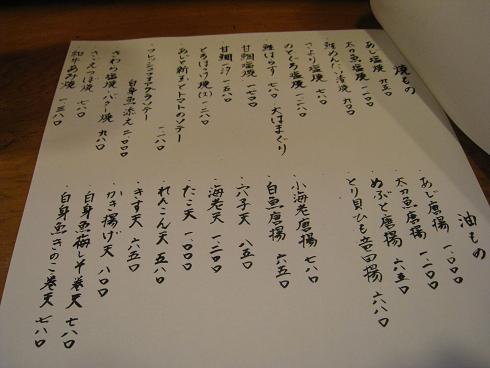 焼もの
・あじ塩焼 九五〇
・太刀魚塩焼 一、一〇〇
・鮭めんたい漬焼 九〇〇
・さより塩焼 七八〇
・のどぐろ塩焼
・鮭はらす 七八〇
大はまぐり
・甘鯛塩焼 一、七〇〇
・甘鯛
・とろほっけ焼
・あじと新玉とトマトのソテー
一、二八〇
・フレッシュフォアグラソテー
白身魚添え 二、〇〇〇
・さわら塩焼・バター焼 九八〇
・さざえつぼ焼 七八〇
・和牛あみ焼 一、三八〇
油もの
・あじ唐揚 一、〇〇〇
・太刀魚唐揚 一、二〇〇
・めぶと唐揚 六五〇
・とり貝ひも竜田揚 六八〇
・小海老唐揚 七八〇
・白魚唐揚 六五〇
・穴子天 八五〇
・海老天 一、二〇〇
・たこ天 一、〇〇〇
・れんこん天 五八〇
・きす天 六五〇
・かき揚げ天 八〇〇
・白身魚梅しそ巻天 七八〇
・白身魚きのこ巻天 七八〇